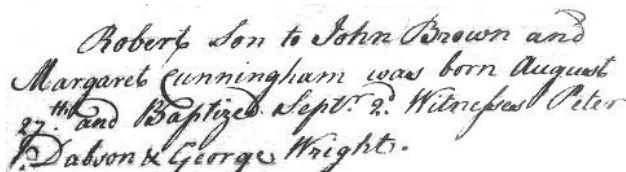 Robert Son to John Brown and
Margaret Cunningham was born August
27th. and Baptized Septr. 2d. Witnesses Peter
Dabson & George Wright.